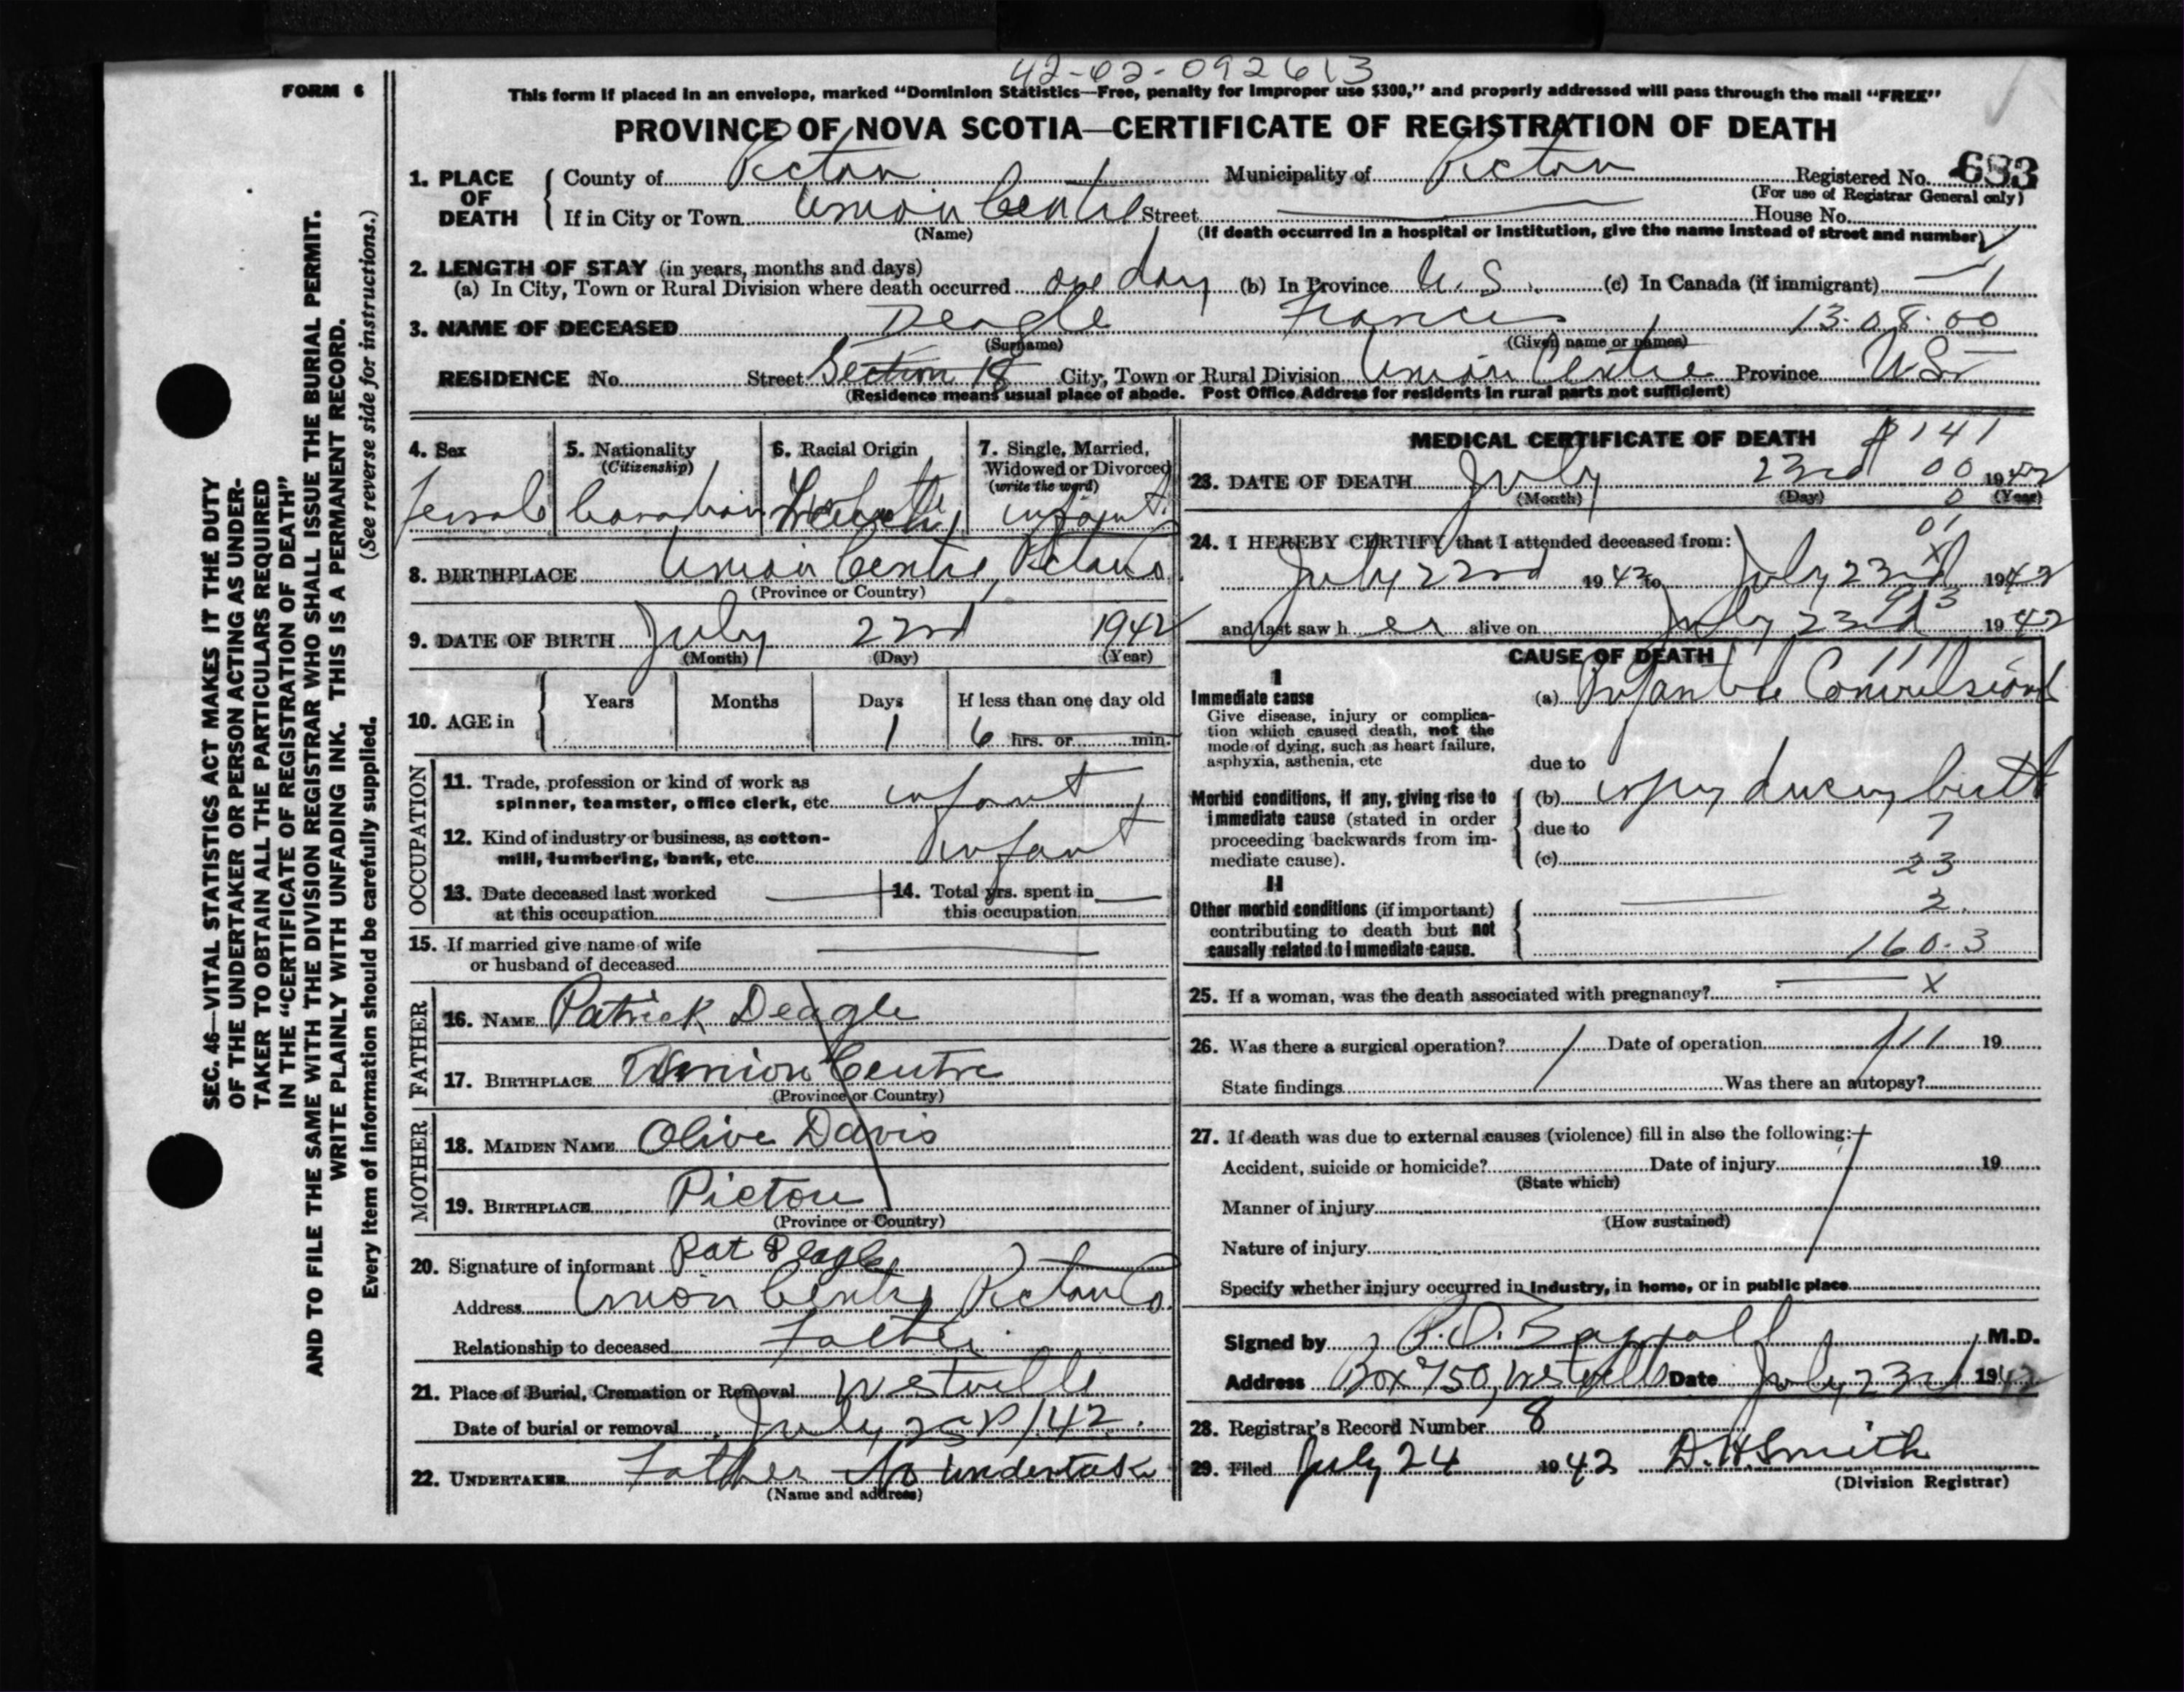 42-02-092613
FORM 6
This form if placed in an envelope, marked "Dominion Statistics—Free, penalty for improper use $300," and properly addressed will pass through the mail "FREE"
PROVINCE OF NOVA SCOTIA—CERTIFICATE OF REGISTRATION OF DEATH
1. PLACE OF DEATH { County of Pictou Municipality of Pictou Registered No. 683
(For use of Registrar General only)
If in City or Town Union Centre Street — House No.
(Name) (If death occurred in a hospital or institution, give the name instead of street and number)
2. LENGTH OF STAY (in years, months and days)
(a) In City, Town or Rural Division where death occurred one day (b) In Province N.S. (c) In Canada (if immigrant) —
3. NAME OF DECEASED Deagle Francis 13.08.00
(Surname) (Given name or names)
RESIDENCE No. Street Section 18 City, Town or Rural Division Union Centre Province N.S.
(Residence means usual place of abode. Post Office Address for residents in rural parts not sufficient)
4. Sex 5. Nationality (Citizenship) 6. Racial Origin 7. Single, Married, Widowed or Divorced (write the word)
female Canadian infant
8. BIRTHPLACE Union Centre, Pictou Co.
(Province or Country)
9. DATE OF BIRTH July 22nd 1942
(Month) (Day) (Year)
10. AGE in { Years Months Days If less than one day old
1 6 hrs. or min.
OCCUPATION
11. Trade, profession or kind of work as
spinner, teamster, office clerk, etc. infant
12. Kind of industry or business, as cotton-
mill, lumbering, bank, etc. infant
13. Date deceased last worked at this occupation — 14. Total yrs. spent in this occupation —
15. If married give name of wife
or husband of deceased —
FATHER
16. NAME Patrick Deagle
17. BIRTHPLACE Union Centre
(Province or Country)
MOTHER
18. MAIDEN NAME Olive Davis
19. BIRTHPLACE Pictou
(Province or Country)
20. Signature of informant Pat Deagle
Address Union Centre Pictou Co.
Relationship to deceased Father
21. Place of Burial, Cremation or Removal Westville
Date of burial or removal July /42.
22. UNDERTAKER Father No Undertaker
(Name and address)
MEDICAL CERTIFICATE OF DEATH
141
23. DATE OF DEATH July 23rd 00 1942
(Month) (Day) 0 (Year)
01
24. I HEREBY CERTIFY that I attended deceased from: X
July 22nd 1942 to July 23rd 1942
and last saw her alive on July 23rd 1942
CAUSE OF DEATH 111
I
Immediate cause (a) Infantile Convulsions
Give disease, injury or complica-
tion which caused death, not the
mode of dying, such as heart failure,
asphyxia, asthenia, etc
due to
Morbid conditions, if any, giving rise to (b) injury during birth
immediate cause (stated in order due to 7
proceeding backwards from im-
mediate cause). (c) 23
II
Other morbid conditions (if important) — 2.
contributing to death but not
causally related to immediate cause. 160.3
25. If a woman, was the death associated with pregnancy? — X
26. Was there a surgical operation? / Date of operation 111 19
State findings Was there an autopsy?
27. If death was due to external causes (violence) fill in also the following:
Accident, suicide or homicide? Date of injury 19
(State which)
Manner of injury
(How sustained)
Nature of injury
Specify whether injury occurred in industry, in home, or in public place
Signed by M.D.
Address Box 750, Westville Date July 23rd 1942
28. Registrar's Record Number 8
29. Filed July 24 1942 D. H. Smith
(Division Registrar)
SEC. 46—VITAL STATISTICS ACT MAKES IT THE DUTY
OF THE UNDERTAKER OR PERSON ACTING AS UNDER-
TAKER TO OBTAIN ALL THE PARTICULARS REQUIRED
IN THE "CERTIFICATE OF REGISTRATION OF DEATH"
AND TO FILE THE SAME WITH THE DIVISION REGISTRAR WHO SHALL ISSUE THE BURIAL PERMIT.
WRITE PLAINLY WITH UNFADING INK. THIS IS A PERMANENT RECORD.
Every item of information should be carefully supplied. (See reverse side for instructions.)